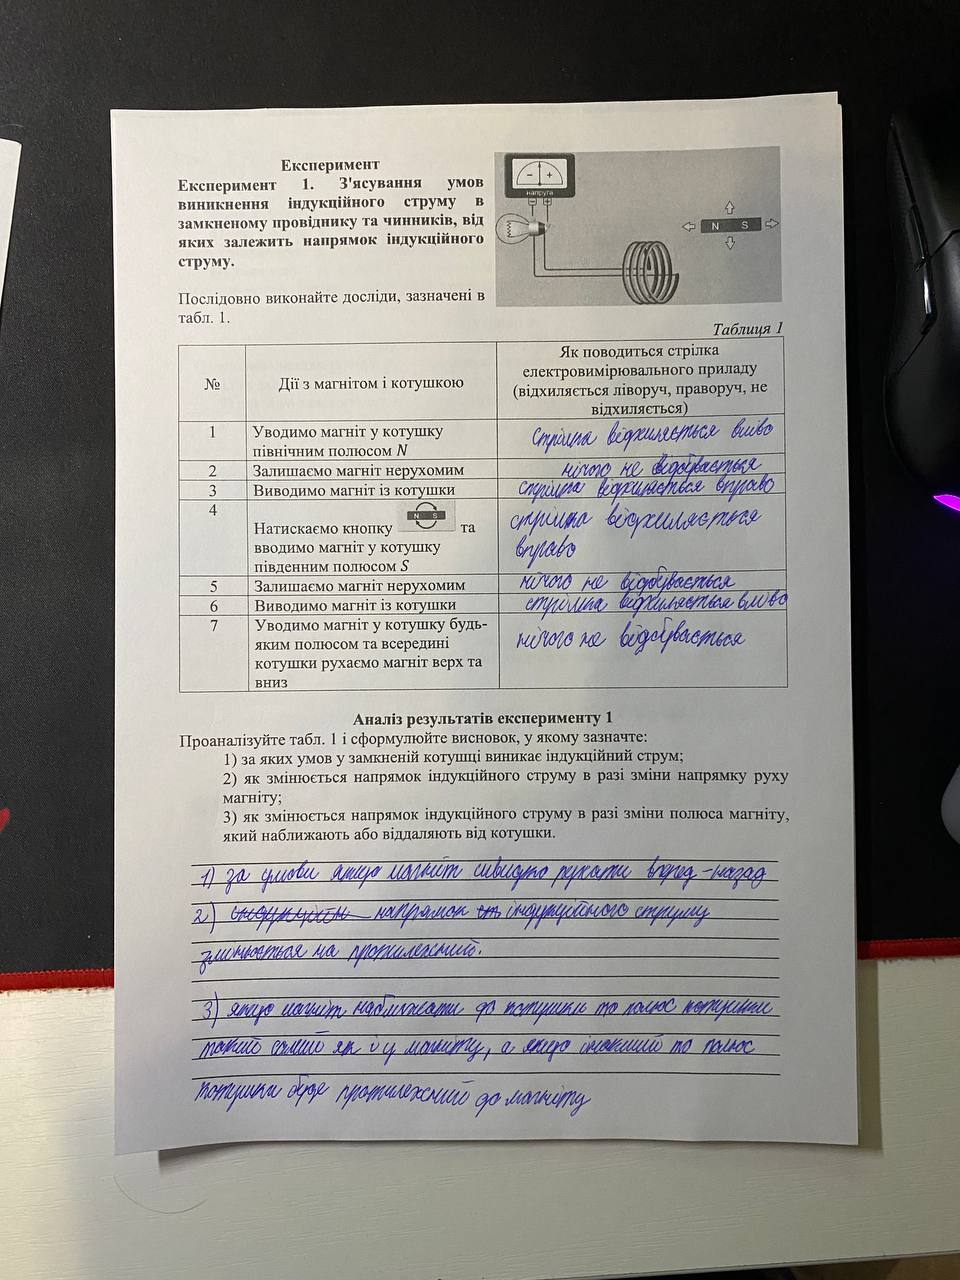 Експеримент
Експеримент 1. З'ясування умов
виникнення індукційного струму в
замкненому провіднику та чинників, від
яких залежить напрямок індукційного
струму.
напруга
N S
Послідовно виконайте досліди, зазначені в
табл. 1.
Таблиця 1
№
Дії з магнітом і котушкою
Як поводиться стрілка
електровимірювального приладу
(відхиляється ліворуч, праворуч, не
відхиляється)
1
Уводимо магніт у котушку
північним полюсом N
стрілка відхиляється вліво
2
Залишаємо магніт нерухомим
нічого не відбувається
3
Виводимо магніт із котушки
стрілка відхиляється вправо
4
Натискаємо кнопку N S та
вводимо магніт у котушку
південним полюсом S
стрілка відхиляється
вправо
5
Залишаємо магніт нерухомим
нічого не відбувається
6
Виводимо магніт із котушки
стрілка відхиляється вліво
7
Уводимо магніт у котушку будь-
яким полюсом та всередині
котушки рухаємо магніт верх та
вниз
нічого не відбувається
Аналіз результатів експерименту 1
Проаналізуйте табл. 1 і сформулюйте висновок, у якому зазначте:
1) за яких умов у замкненій котушці виникає індукційний струм;
2) як змінюється напрямок індукційного струму в разі зміни напрямку руху
магніту;
3) як змінюється напрямок індукційного струму в разі зміни полюса магніту,
який наближають або віддаляють від котушки.
1) за умови якщо магніт швидко рухати вперед-назад
2) напрямок індукційного струму
змінюється на протилежний.
3) якщо магніт наближати до котушки то полюс котушки
такий самий як і у магніту, а якщо інакший то полюс
котушки буде протилежний до магніту